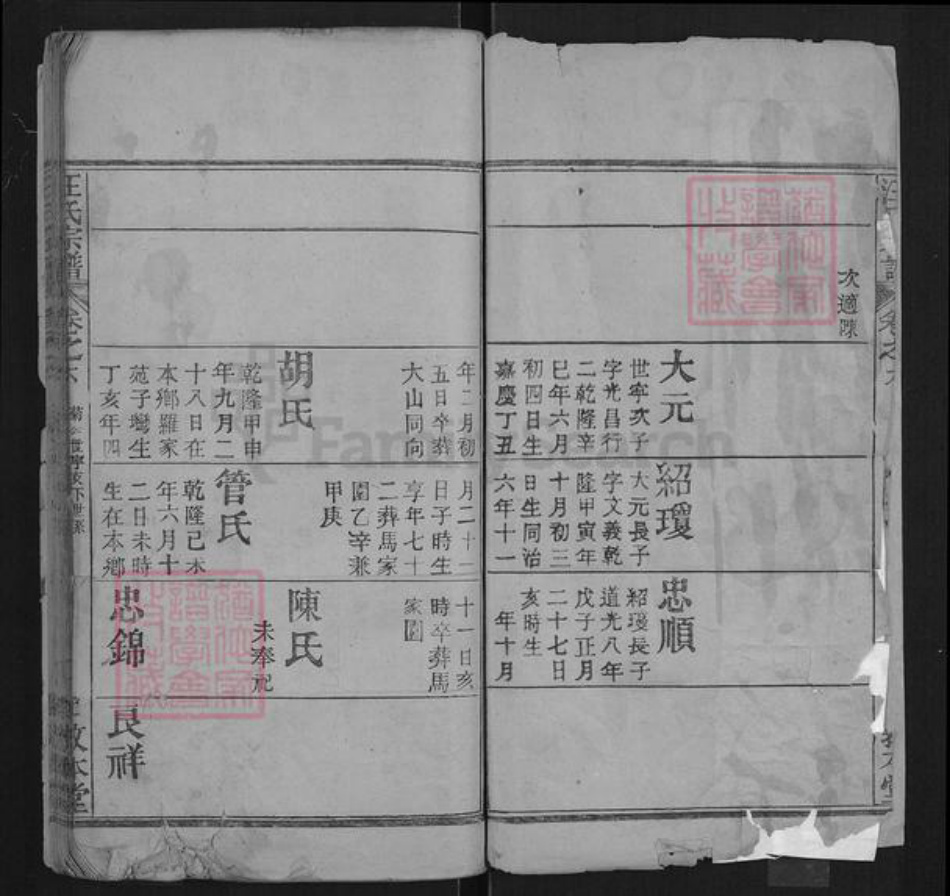 次適陳
大元
世寧次子
字光昌行
二乾隆辛
巳年六月
初四日生
嘉慶丁丑
年二月初
五日卒葬
大山同向
胡氏
乾隆甲申
年九月二
十八日在
本鄉羅家
苑子灣生
丁亥年四
紹瓊
大元長子
字文義乾
隆甲寅年
十月初三
日生同治
六年十一
月二十一
日子時生
享年七十
二葬馬家
園乙辛兼
甲庚
管氏
乾隆己未
年六月十
二日未時
生在本鄉
忠順
紹瓊長子
道光八年
戊子正月
二十七日
亥時生
年十月
十一日亥
時卒葬馬
家園
陳氏
未奉祀
忠錦
良祥
汪氏宗譜
卷之六
敦本堂